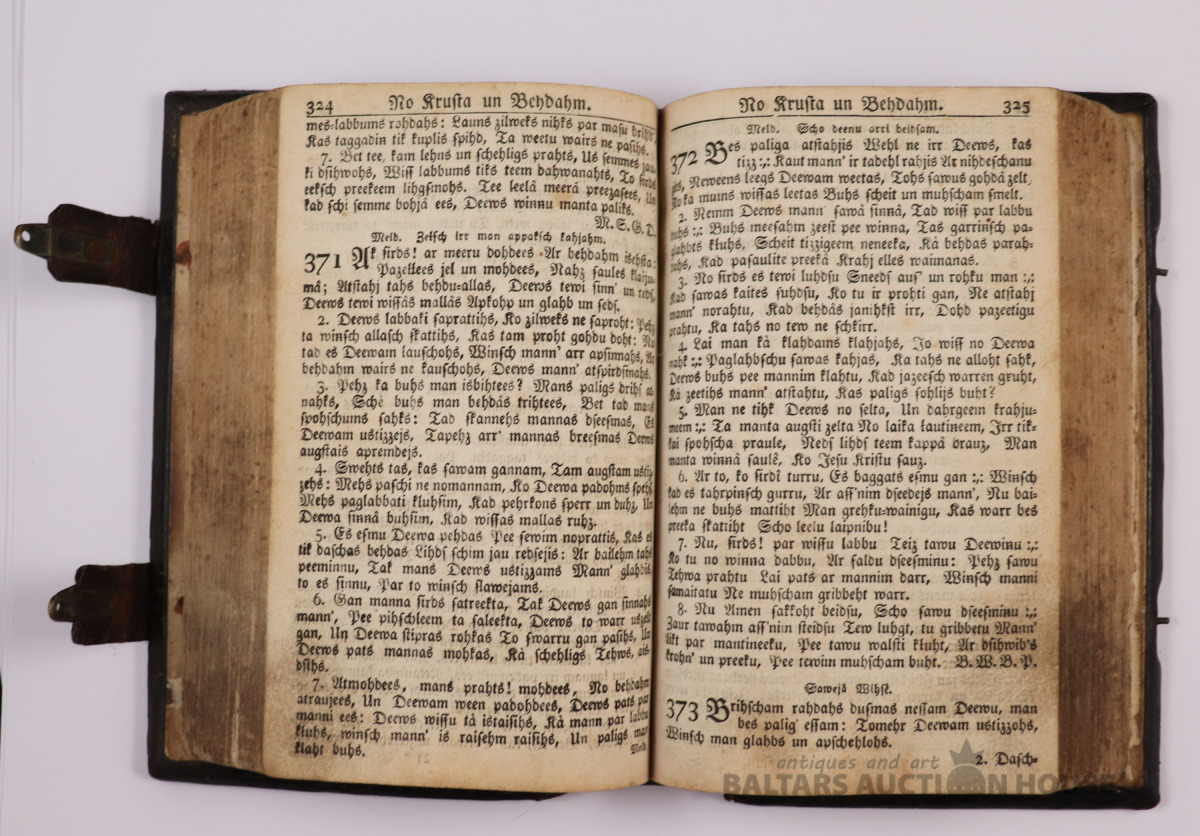 324 No Krusta un Behdahm.
mes-labbums rohdahs: Launs zilweks nihks par masu
Kas taggadin tik kuplis spihd, Ta weetu wairs ne pasihs.
7. Bet tee, kam lehns un schehligs prahts, Us semmes
ki dsihwohs, Wiss labbums tiks teem dahwanahts, To
eeksch preekeem lihgsmohs. Tee leelâ meerâ preezasees, Un
kad schi semme bohjâ ees, Deews winnu manta paliks.
M. S. G. D.
Meld. Zelsch irr man appaksch kahjahm.
371 Ak sirds! ar meeru dohdees Ar behdahm
Pazellees jel un mohdees, Nahz saules
mâ; Atstahj tahs behdu-allas, Deews tewi sinn' un reds,
Deews tewi wissâs mallâs Apkohp un glahb un seds.
2. Deews labbaki saprattihs, Ko zilweks ne saproht:
ta winsch allasch skattihs, Kas tam proht gohdu doht:
tad es Deewam lauschohs, Winsch mann' arr apsinnahs,
behdahm wairs ne kauschohs, Deews mann' atspirdsinahs.
3. Pehz ka buhs man isbihtees? Mans paligs drihs
nahks, Schê buhs man behdâs trihtees, Bet tad mans
spohschums sahks: Tad skannehs mannas dseesmas, Es
Deewam ustizzejs, Tapehz arr' mannas breesmas Deews
augstais apremdejs.
4. Swehts tas, kas sawam gannam, Tam augstam
zehs: Mehs paschi ne nomannam, Ko Deewa padohms spehs,
Mehs paglabbati kluhsim, Kad pehrkons sperr un buhz, Un
Deewa sinnâ buhsim, Kad wissas mallas ruhz.
5. Es esmu Deewa pehdas Pee sewim noprattis, Kas es
tik daschas behdas Lihds schim jau redsejis: Ar bailehm tahs
peeminnu, Tak mans Deews ustizzams Mann' glahbis
to es sinnu, Par to winsch slawejams.
6. Gan manna sirds satreekta, Tak Deews gan sinnahs
mann', Pee pihschleem ta saleekta, Deews to warr
gan, Un Deewa stipras rohkas To swarru gan pasihs, Un
Deews pats mannas mohkas, Kâ schehligs Tehws,
dsihs.
7. Atmohdees, mans prahts! mohdees, No behdahm
atraujees, Un Deewam ween padohdees, Deews pats par
manni ees: Deews wissu tâ istaisihs, Kâ mann par labbu
kluhs, winsch mann' is raisehm raisihs, Un paligs man
klaht buhs.
Meld.
No Krusta un Behdahm. 325
Meld. Scho deenu arri beidsam.
372 Bes paliga atstahjis Wehl ne irr Deews, kas
tizz :,: Kaut mann' ir tadehl rahjis Ar nihdeschanu
Neweens leegs Deewam weetas, Tohs sawus gohdâ zelt,
ka mums wissas leetas Buhs scheit un muhscham smelt.
2. Nemm Deews mann' sawâ sinnâ, Tad wiss par labbu
buhs :,: Buhs meesahm zeest pee winna, Tas garrinsch pa-
glahbts kluhs, Scheit tizzigeem neneeka, Kâ behdas parah-
Kad pasaulite preekâ Krahj elles waimanas.
3. No sirds es tewi luhdsu Sneeds aus' un rohku man :,:
Kad sawas kaites suhdsu, Ko tu ir prohti gan, Ne atstahj
mann' norahtu, Kad behdâs janihkst irr, Dohd pazeetigu
prahtu, Ka tahs no tew ne schkirr.
4. Lai man kâ klahdams klahjahs, Jo wiss no Deewa
nahk :,: Paglahbschu sawas kahjas, Ka tahs ne alloht sahk,
Deews buhs pee mannim klahtu, Kad jazeesch warren gruht,
Kâ zeetihs mann' atstahtu, Kas paligs sohlijs buht?
5. Man ne tihk Deews no selta, Un dahrgeem krahju-
meem :,: Ta manta augsti zelta No laika lautineem, Irr tik-
kai spohscha praule, Neds lihds teem kappâ brauz, Man
manta winnâ saulê, Ko Jesu Kristu sauz.
6. Ar to, ko sirdî turru, Es baggats esmu gan :,: Winsch
kad es tahrpinsch gurru, Ar ass'nim dseedejs mann', Nu bai-
lehm ne buhs mattiht Man grehku-wainigu, Kas warr bes
preeka skattiht Scho leelu laipnibu!
7. Nu, sirds! par wissu labbu Teiz tawu Deewinu :,:
Ko tu no winna dabbu, Ar saldu dseesminu: Pehz sawu
Tehwa prahtu Lai pats ar mannim darr, Winsch manni
samaitatu Ne muhscham gribbeht warr.
8. Nu Amen sakkoht beidsu, Scho sawu dseesminu :,:
Zaur tawahm ass'nim steidsu Tew luhgt, tu gribbetu Mann'
likt par mantineeku, Pee tawu walsti kluht, Ar dsihwib's
krohn' un preeku, Pee tewim muhscham buht. B. W. B. P.
Sawejâ Wihsê.
373 Brihscham rahdahs dusmas nessam Deewu, man
bes palig' essam: Tomehr Deewam ustizzohs,
Winsch man glahbs un apschehlohs.
2. Dasch-
antiques and art
BALTARS AUCTION HOUSE